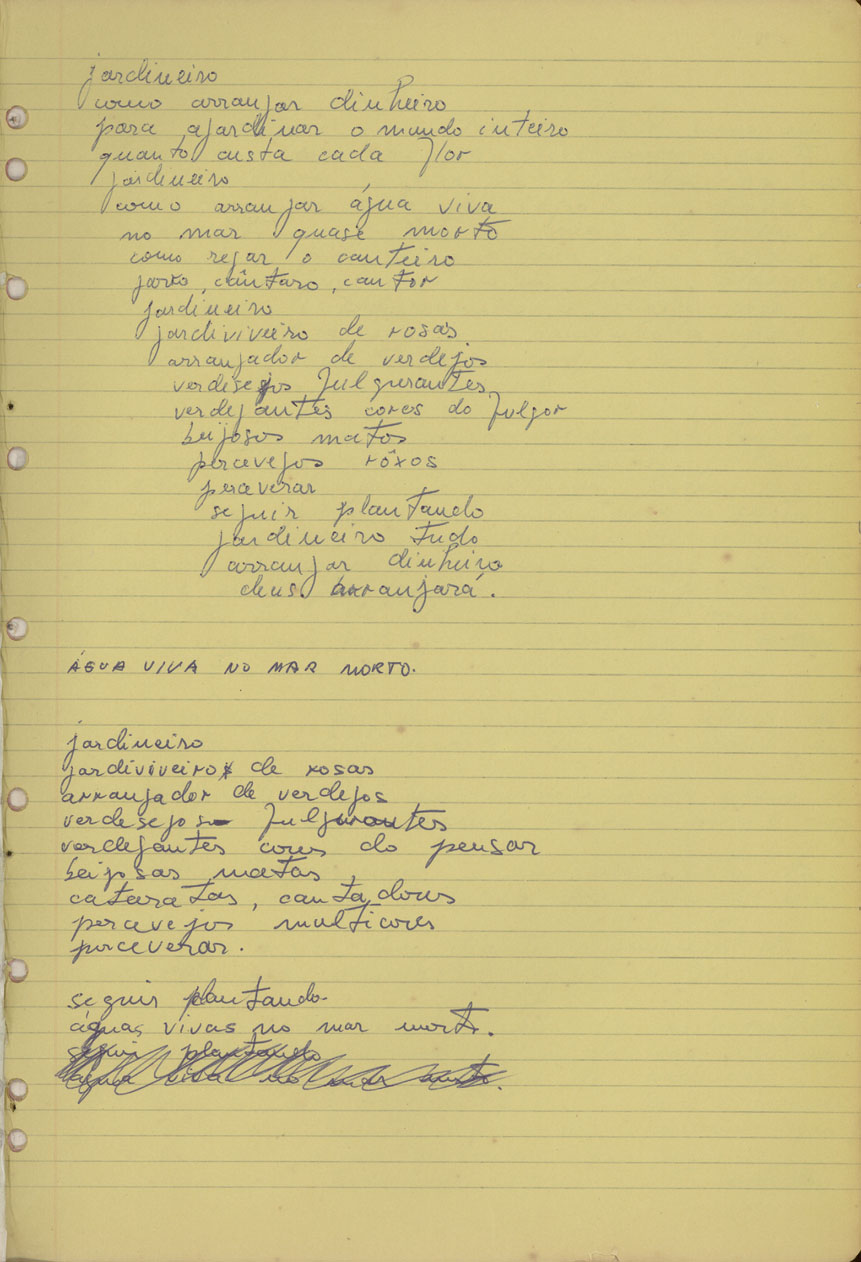 jardineiro
como arranjar dinheiro
para ajardinar o mundo inteiro
quanto custa cada flor
jardineiro
como arranjar água viva
no mar quase morto
como regar o canteiro
jarro, cântaro, cantor
jardineiro
jardiviveiro de rosas
arranjador de verdejos
verdesejos fulgurantes
verdejantes cores do fulgor
beijosos matos
percevejos rôxos
perceverar
seguir plantando
jardineiro tudo
arranjar dinheiro
deus arranjará.
ÁGUA VIVA NO MAR MORTO.
jardineiro
jardiviveiro de rosas
arranjador de verdejos
verdesejos fulgurantes
verdejantes cores do pensar
beijosas matas
cataratas, cantadores
percevejos multicores
perceverar.
seguir plantando
águas vivas no mar morto.
seguir plantando
água viva no mar morto.